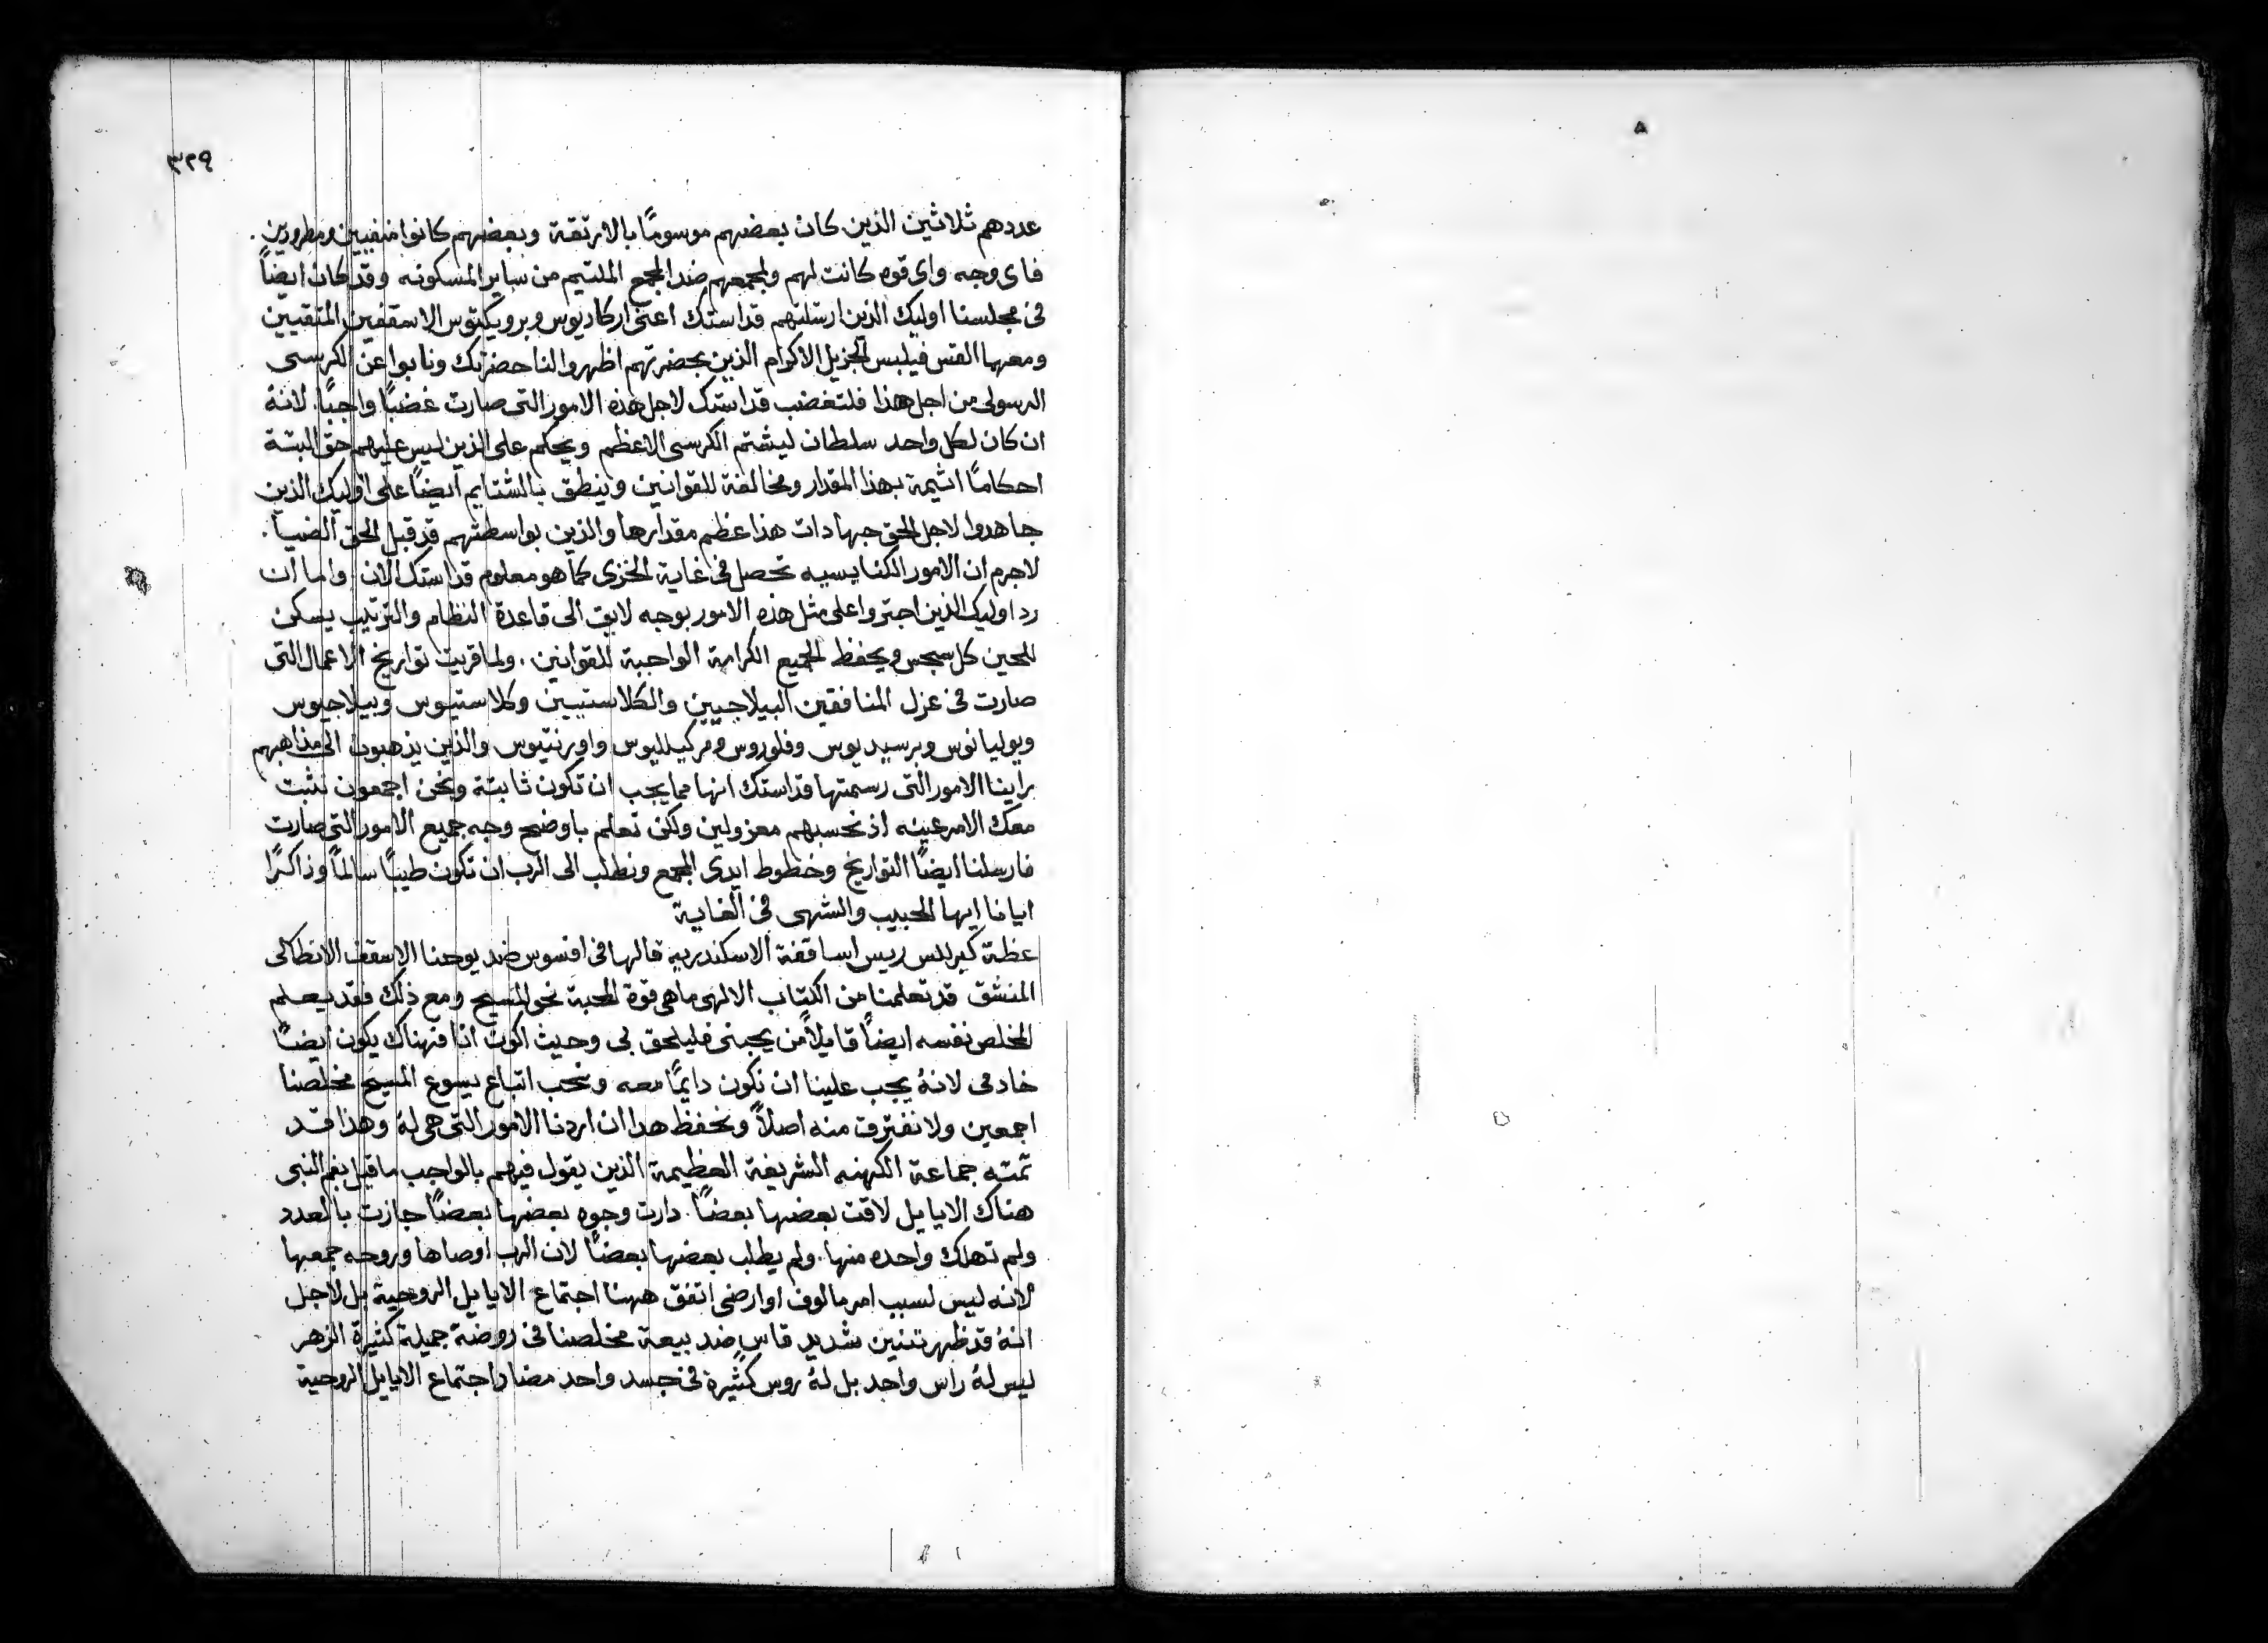 ٣٢٩
عددهم ثلاثين الذين كان بعضهم موسومًا بالارتقة وبعضهم كانوا منفيين ومطرودين.
فاى وجه واى قوه كانت لهم ولمجمعهم ضد المجمع الملتيم من ساير المسكونه وقد كان ايضاً
فى مجلسنا اوليك الذين ارسلتهم قداستك اعنى اركاديوس وبرويكتوس الاسقفين المتقيين
ومعهما القس فيلبس الجزيل الاكرام الذين بحضرتهم اظهروا لنا حضرتك ونابوا عن الكرسى
الرسولى من اجل هذا فلتغضب قداستك لاجل هذه الامور التى صارت غضبًا واجبًا. لانهُ
ان كان لكل واحد سلطان ليشتم الكرسى الاعظم ويحكم على الذين ليس عليهم حق البتة
احكامًا اثيمة بهذا المقدار ومخالفة للقوانين وينطق بالشتايم ايضاً على اوليك الذين
جاهدوا لاجل الحق جهادات هذا عظم مقدارها والذين بواسطتهم قد قبل الحق الضيا.
لاجرم ان الامور الكنايسيه تحصل فى غاية الخزى كما هو معلوم قداستك الان. واما ان
رد اوليك الذين اجتروا على مثل هذه الامور بوجه لايق الى قاعدة النظام والترتيب يسكن
للحين كل سجس ويحفظ الجميع الكرامة الواجبة للقوانين. ولما قريت تواريخ الاعمال التى
صارت فى عزل المنافقين البيلاجيين والكلاستيين وكلاستيوس وبيلاجيوس
ويوليانوس وبرسيديوس وفلوروس ومركيلليوس واورنتيوس والذين يذهبون الى مذاهبهم
براينا الامور التى رسمتها قداستك انها مما يجب ان تكون ثابتة ونحن اجمعون نثبت
معك الامر عينه اذ نحسبهم معزولين ولكن تعلم باوضح وجه جميع الامور التى صارت
فارسلنا ايضاً التواريخ وخطوط ايدى المجمع ونطلب الى الرب ان تكون طيبًا سالماً وذاكرًا
ايانا ايها الحبيب والشهى فى الغاية
عظة كيرللس ريس اساقفة الاسكندريه قالها فى افسوس ضد يوحنا الاسقف الانطاكى
المنشق قد تعلمنا من الكتاب الالهى ما هى قوة المحبة نحو المسيح ومع ذلك فقد يعلم
المخلص نفسه ايضاً قايلاً من يحبنى فليلحق بى وحيث اكون انا فهناك يكون ايضاً
خادمى لانهُ يجب علينا ان نكون دايمًا معه ونحب اتباع يسوع المسيح مخلصنا
اجمعين ولا نفترق منه اصلاً ونحفظ هدا ان اردنا الامور التى هى لهُ وهذا قد
تمته جماعة الكهنه الشريفة العظيمة الذين يقول فيهم بالواجب ما قيل بفم النبى
هناك الايايل لاقت بعضها بعضاً. دارت وجوه بعضها بعضاً جازت بالعدد
ولم تهلك واحده منها. ولم يطلب بعضها بعضاً لان الرب اوصاها وروحه جمعها
لانه ليس لسبب امر مالوف او ارضى اتفق ههنا اجتماع الايايل الروحية بل لاجل
انهُ قد ظهر تنين شديد قاسٍ ضد بيعة مخلصنا فى روضة جميلة كثيرة الزهر
ليس لهُ راس واحد بل لهُ روس كثيرة فى جسد واحد مضاد اجتماع الايايل الروحية